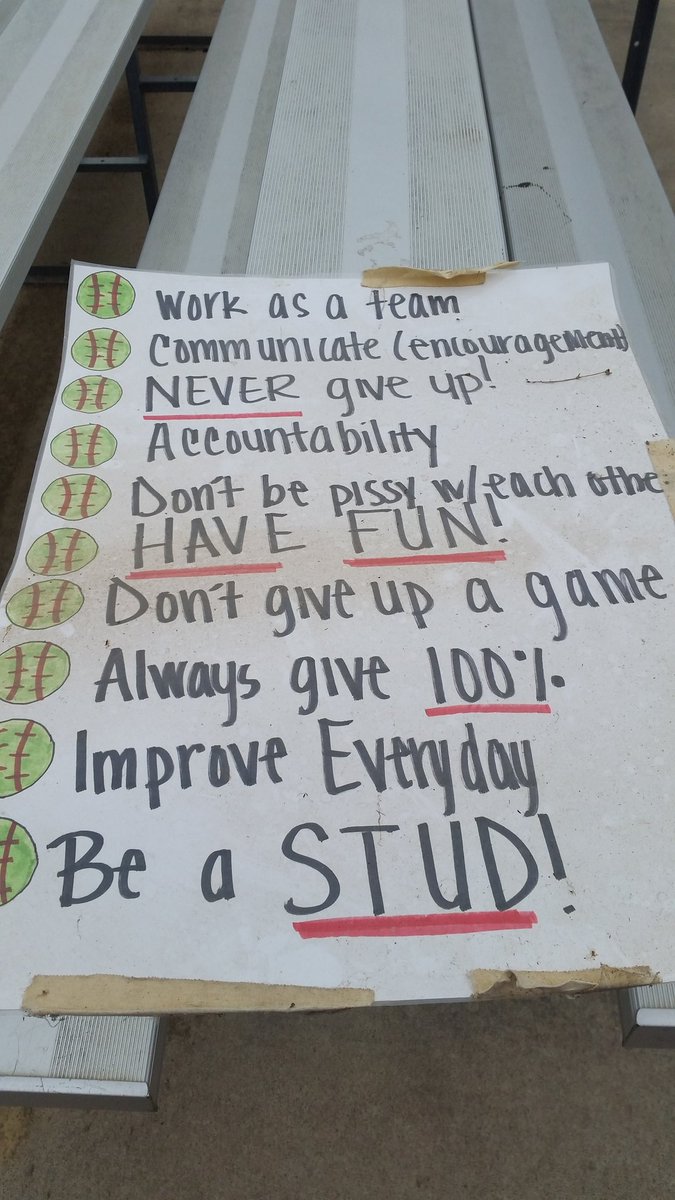 Work as a team
Communicate (encouragement)
NEVER give up!
Accountability
Don't be pissy w/each othe
HAVE FUN!
Don't give up a game
Always give 100%
Improve Everyday
Be a STUD!